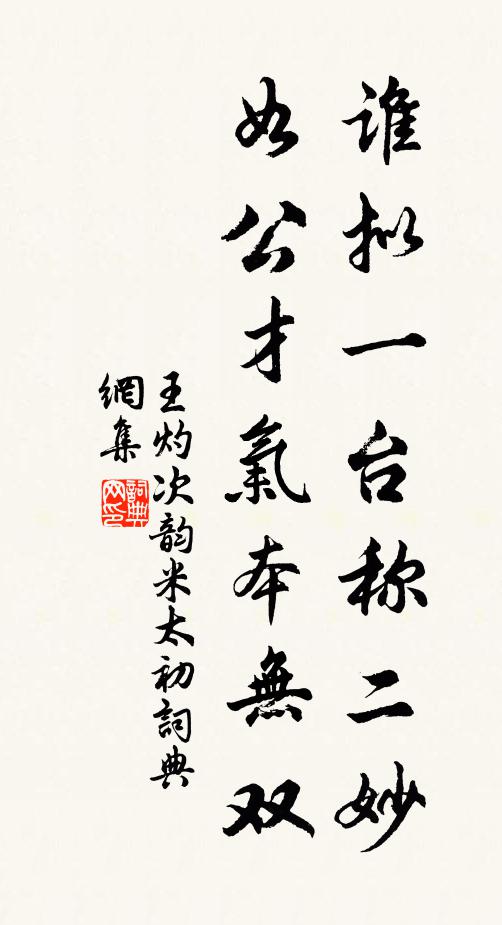 谁拟一台称二妙
如公才氣本無双
王灼次韵米太初詞典
網集
詞典
网印